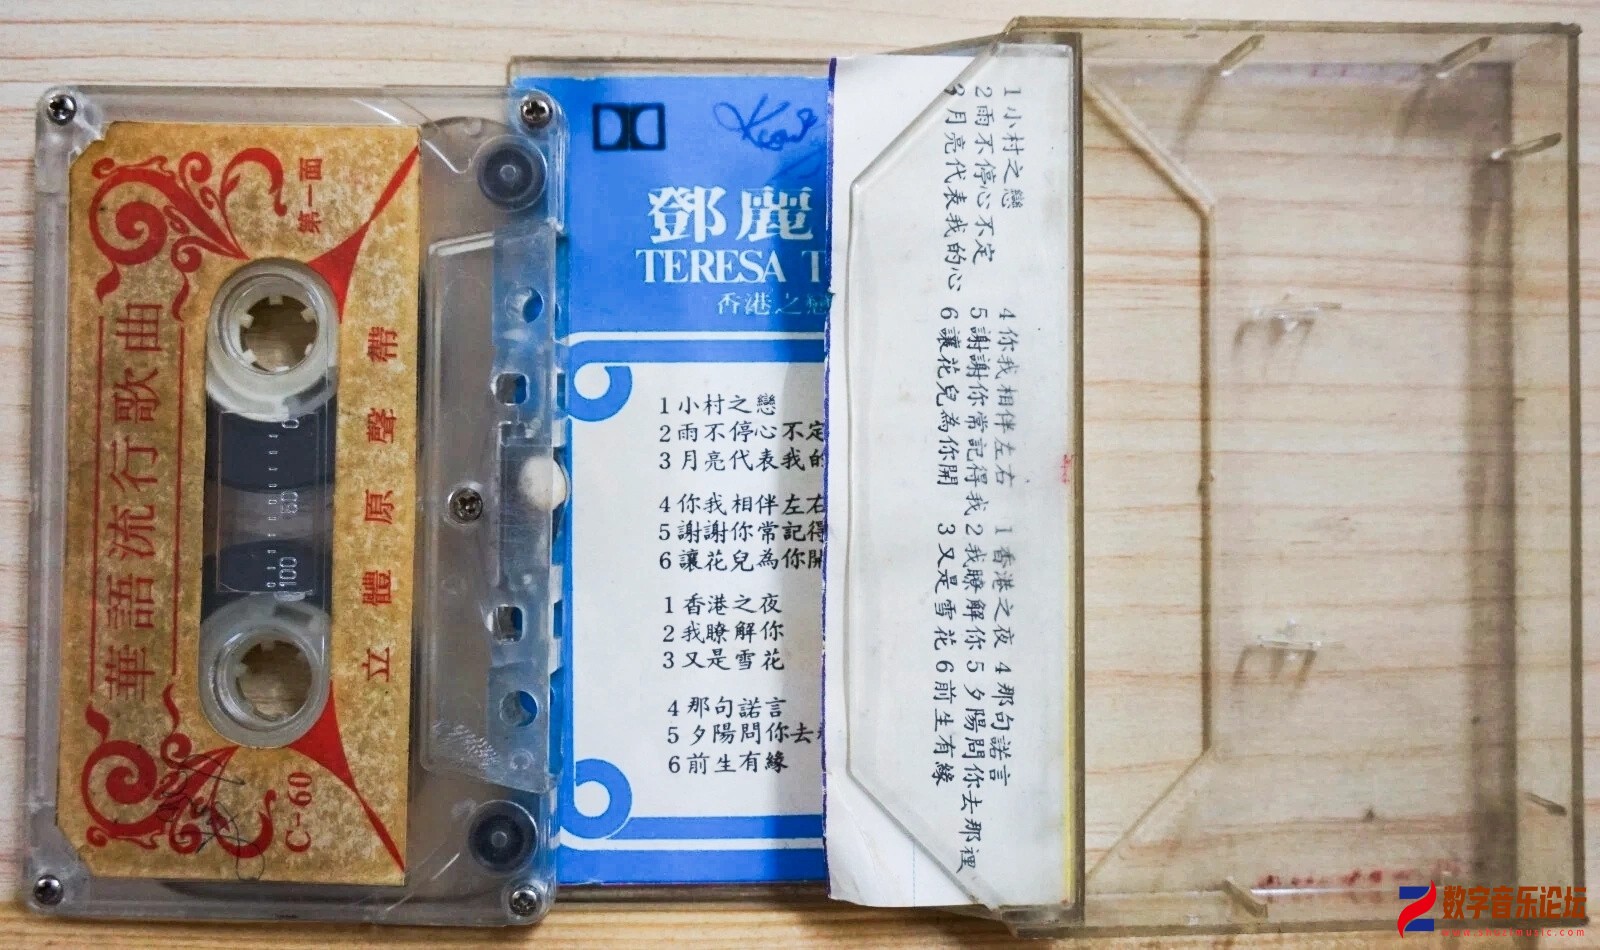 第一面
華語流行歌曲
立體原聲帶
C-60
0
50
100
鄧麗
TERESA T
香港之戀
1 小村之戀
2 雨不停心不定
3 月亮代表我的
4 你我相伴左右
5 謝謝你常記得
6 讓花兒為你開
1 香港之夜
2 我瞭解你
3 又是雪花
4 那句諾言
5 夕陽問你去
6 前生有緣
1 小村之戀 4 你我相伴左右 1 香港之夜 4 那句諾言
2 雨不停心不定 5 謝謝你常記得我 2 我瞭解你 5 夕陽問你去那裡
3 月亮代表我的心 6 讓花兒為你開 3 又是雪花 6 前生有緣
数字音乐论坛